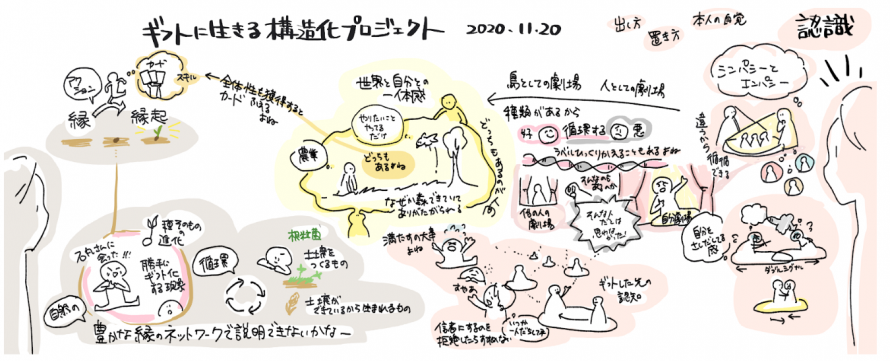 ギフトに生きる構造化プロジェクト 2020.11.20
出し方
置き方
本人の自覚
認識
シンパシーと
エンパシー
違うから
循環
できる
鳥としての劇場 人としての劇場
種類があるから
好 循環する 悪
ラベルひっくりかえることもあるよね
他の人の
劇場
そんなのも
あんのか
そんな人
だとは
思わな
かった!
自分劇場
自分を
出しだしてる
感
ダブルシグナル
世界と自分との
一体感
やりたいこと
やってる
だけ
どっちも
あるよね
農業
なぜか森できていて
ありがたがられる
どっちもあるのが人間
全体性を獲得すると
カードふえる
よね
カード
スキル
アクション
縁 縁起
種そのもの
の進化
石丸さんに
会った!!!
勝手に
ギフト化
する現象
自然の
循環
豊かな縁のネットワークで説明できないかなー
根粒菌
土壌を
つくるもの
土壌が
できているから生まれるもの
満たすの大事
よね
すやぁ
信者にするのを
拒絶したらすねない
いつか
一人だちしてネ
ギフトした先の
認知。